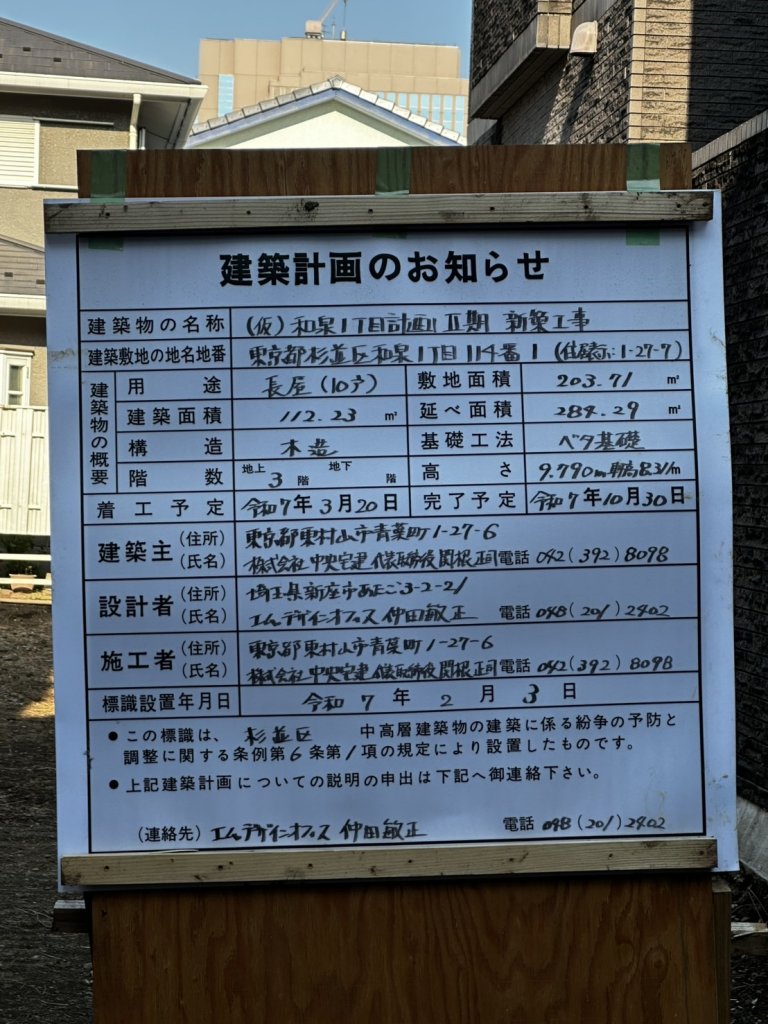 建築計画のお知らせ
建築物の名称 (仮)和泉1丁目計画 II期 新築工事
建築敷地の地名地番 東京都杉並区和泉1丁目114番1 (住居表示:1-27-7)
建築物の概要
用途 長屋(10戸) 敷地面積 203.71 ㎡
建築面積 112.23 ㎡ 延べ面積 284.29 ㎡
構造 木造 基礎工法 ベタ基礎
階数 地上 3 階 地下 階 高さ 9.790m 軒高8.311m
着工予定 令和7年3月20日 完了予定 令和7年10月30日
建築主 (住所) 東京都東村山市青葉町1-27-6
(氏名) 株式会社 中央宅建 代表取締役 関根正司 電話 042(392)8098
設計者 (住所) 埼玉県新座市あたご3-2-21
(氏名) エムデザインオフィス 仲田敏正 電話 048(201)2402
施工者 (住所) 東京都東村山市青葉町1-27-6
(氏名) 株式会社 中央宅建 代表取締役 関根正司 電話 042(392)8098
標識設置年月日 令和7年2月3日
●この標識は、杉並区 中高層建築物の建築に係る紛争の予防と
調整に関する条例第6条第1項の規定により設置したものです。
●上記建築計画についての説明の申出は下記へ御連絡下さい。
(連絡先) エムデザインオフィス 仲田敏正 電話 048(201)2402